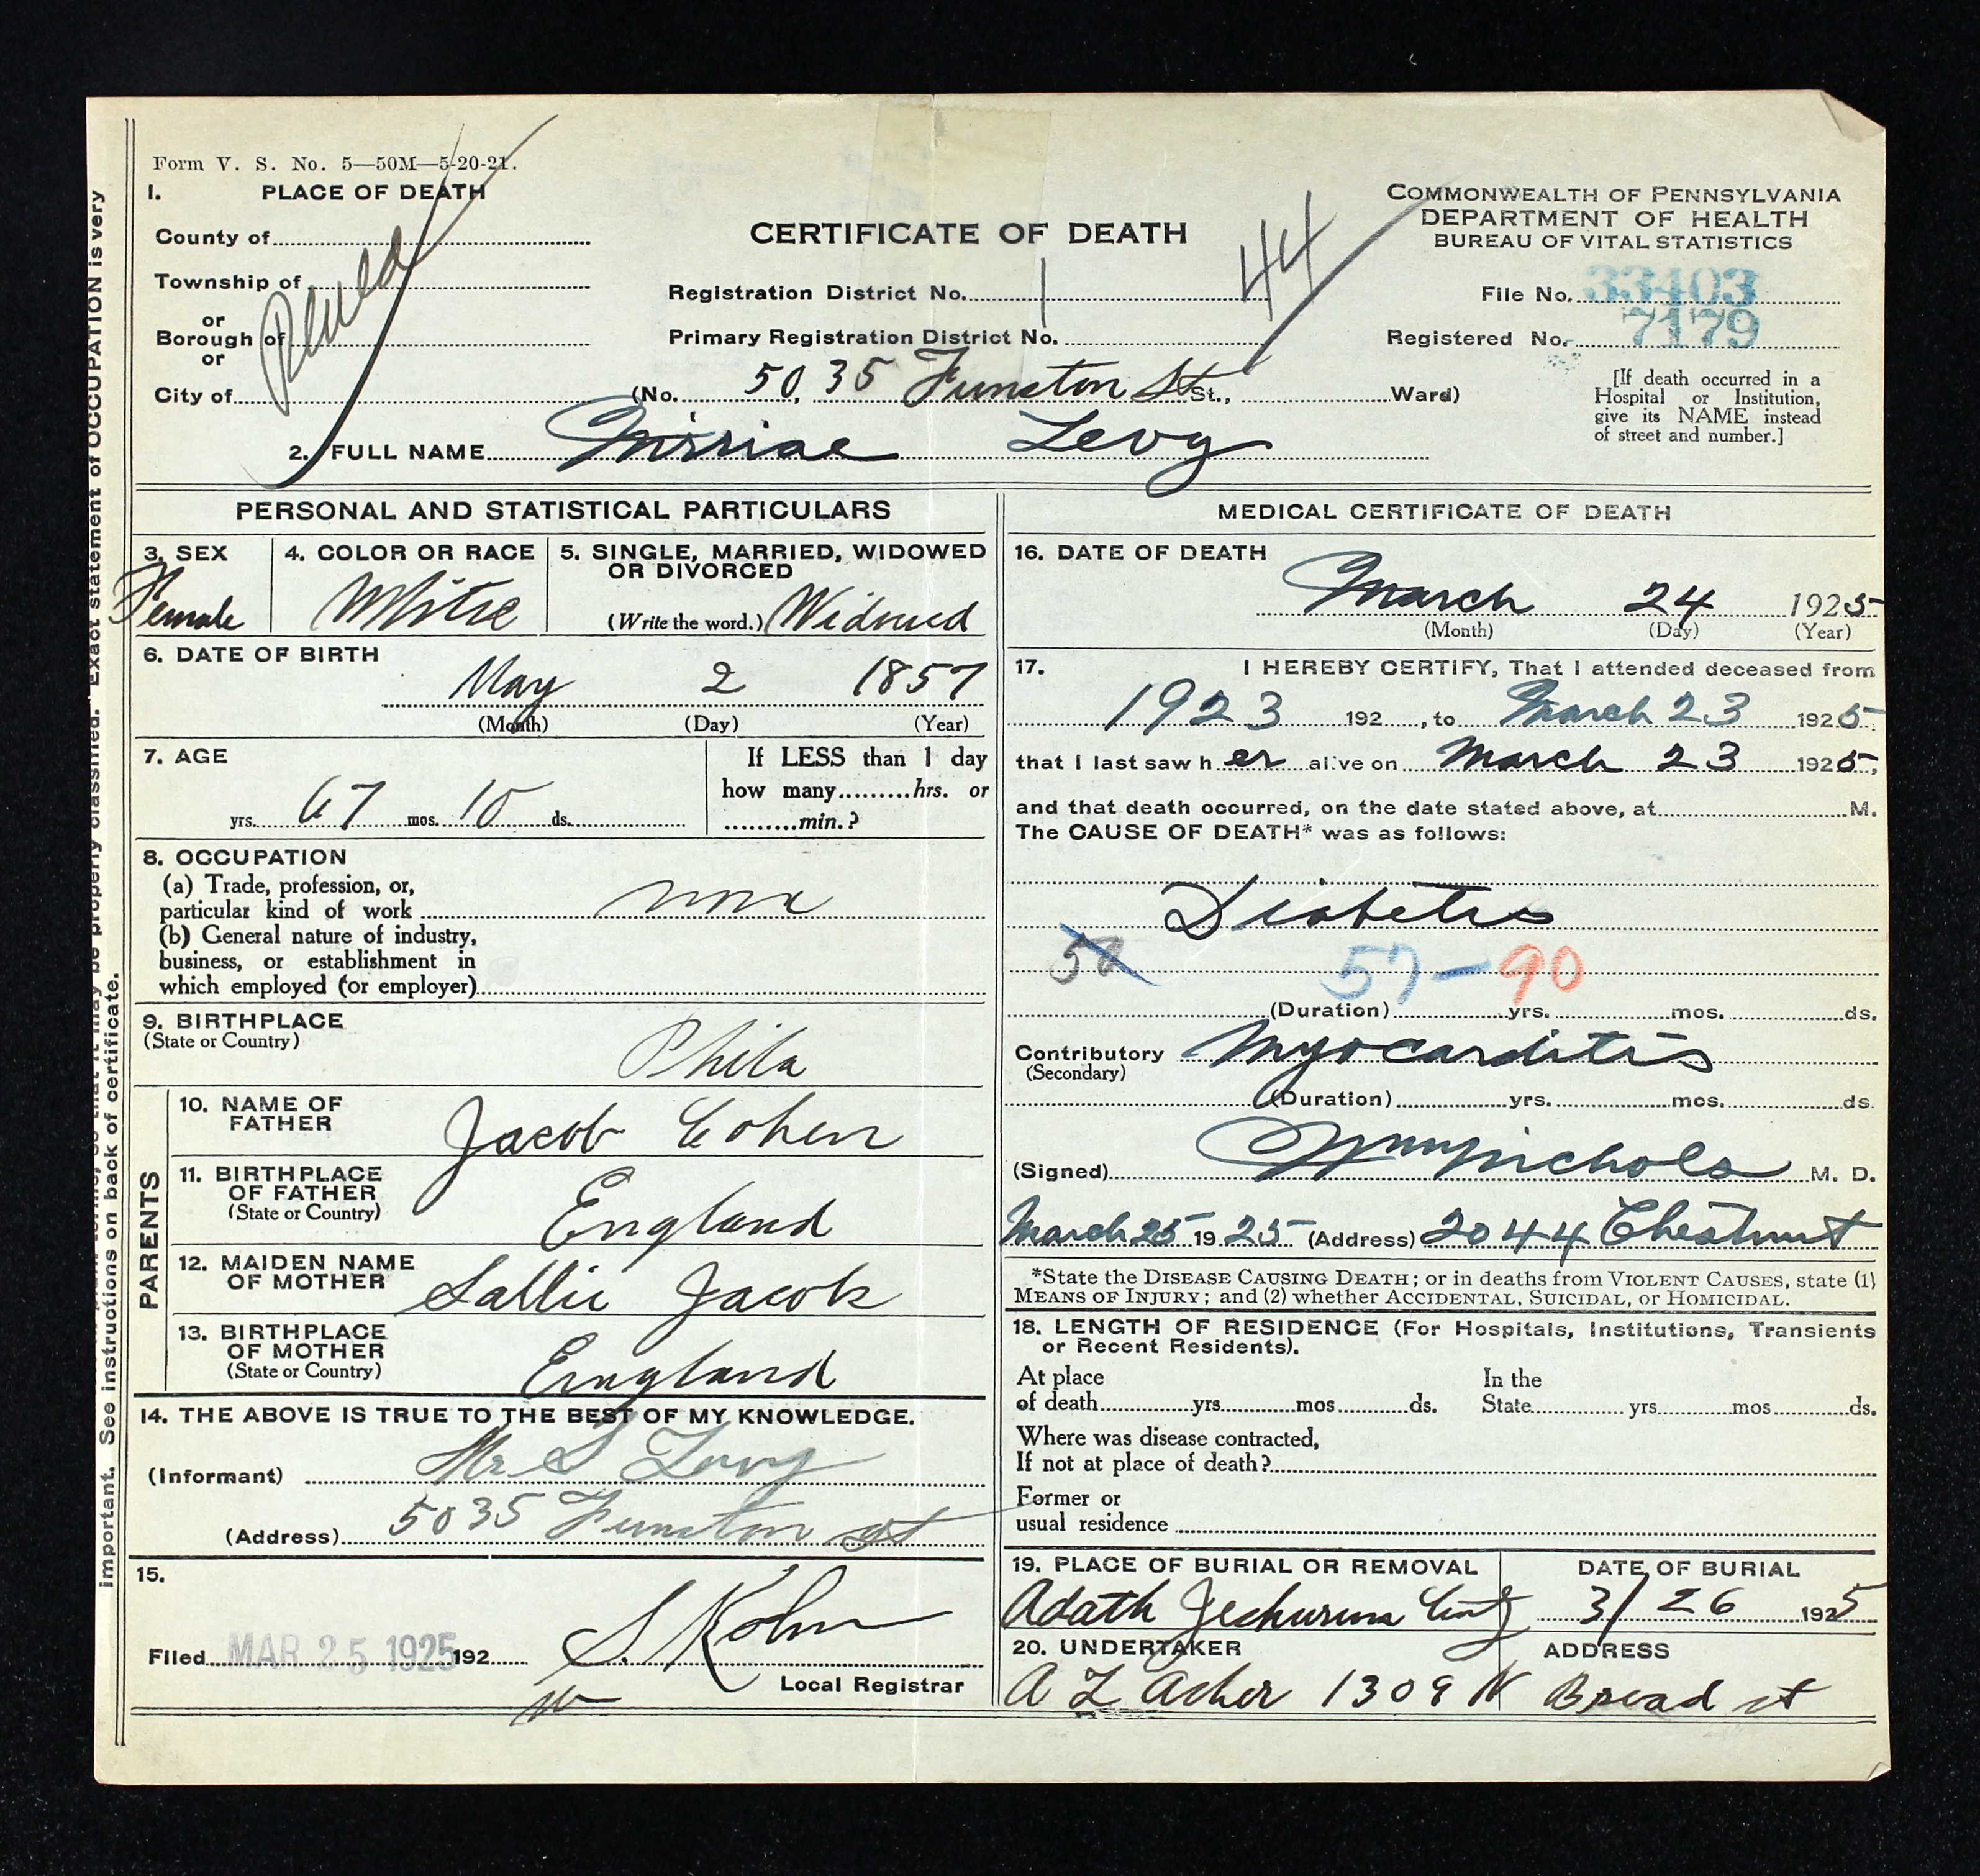 Form V. S. No. 5—50M—5-20-21.
1. PLACE OF DEATH
County of
Township of
or
Borough of
or
City of
Phila
CERTIFICATE OF DEATH
Registration District No. 1
Primary Registration District No.
44
(No. 5035 Funston St St., Ward)
COMMONWEALTH OF PENNSYLVANIA
DEPARTMENT OF HEALTH
BUREAU OF VITAL STATISTICS
File No. 33403
Registered No. 7179
[If death occurred in a
Hospital or Institution,
give its NAME instead
of street and number.]
2. FULL NAME Levy
PERSONAL AND STATISTICAL PARTICULARS
3. SEX
Female
4. COLOR OR RACE
White
5. SINGLE, MARRIED, WIDOWED
OR DIVORCED
(Write the word.) Widowed
6. DATE OF BIRTH
May 2 1857
(Month) (Day) (Year)
7. AGE
yrs. 67 mos. 10 ds.
If LESS than 1 day
how many hrs. or
min.?
8. OCCUPATION
(a) Trade, profession, or,
particular kind of work none
(b) General nature of industry,
business, or establishment in
which employed (or employer)
9. BIRTHPLACE
(State or Country)
Phila
PARENTS
10. NAME OF
FATHER
Jacob Cohen
11. BIRTHPLACE
OF FATHER
(State or Country)
England
12. MAIDEN NAME
OF MOTHER
Sallie Jacob
13. BIRTHPLACE
OF MOTHER
(State or Country)
England
14. THE ABOVE IS TRUE TO THE BEST OF MY KNOWLEDGE.
(Informant) Mr S Levy
(Address) 5035 Funston st
15.
Filed MAR 25 1925 192
S. Kohn
Local Registrar
MEDICAL CERTIFICATE OF DEATH
16. DATE OF DEATH
March 24 1925
(Month) (Day) (Year)
17. I HEREBY CERTIFY, That I attended deceased from
1923 192 , to March 23 1925
that I last saw her alive on March 23 1925,
and that death occurred, on the date stated above, at M.
The CAUSE OF DEATH* was as follows:
Diabetes
57-90
(Duration) yrs. mos. ds.
Contributory Myocarditis
(Secondary)
(Duration) yrs. mos. ds.
(Signed) Nichols M. D.
March 25 1925 (Address) 2044 Chestnut
*State the DISEASE CAUSING DEATH; or in deaths from VIOLENT CAUSES, state (1)
MEANS OF INJURY; and (2) whether ACCIDENTAL, SUICIDAL, or HOMICIDAL.
18. LENGTH OF RESIDENCE (For Hospitals, Institutions, Transients
or Recent Residents).
At place
of death yrs mos ds.
In the
State yrs mos ds.
Where was disease contracted,
If not at place of death?
Former or
usual residence
19. PLACE OF BURIAL OR REMOVAL
Adath Jeshurun
DATE OF BURIAL
3/26 1925
20. UNDERTAKER
ADDRESS
A L Asher 1309 N Broad st
important. See instructions on back of certificate.
Exact statement of OCCUPATION is very